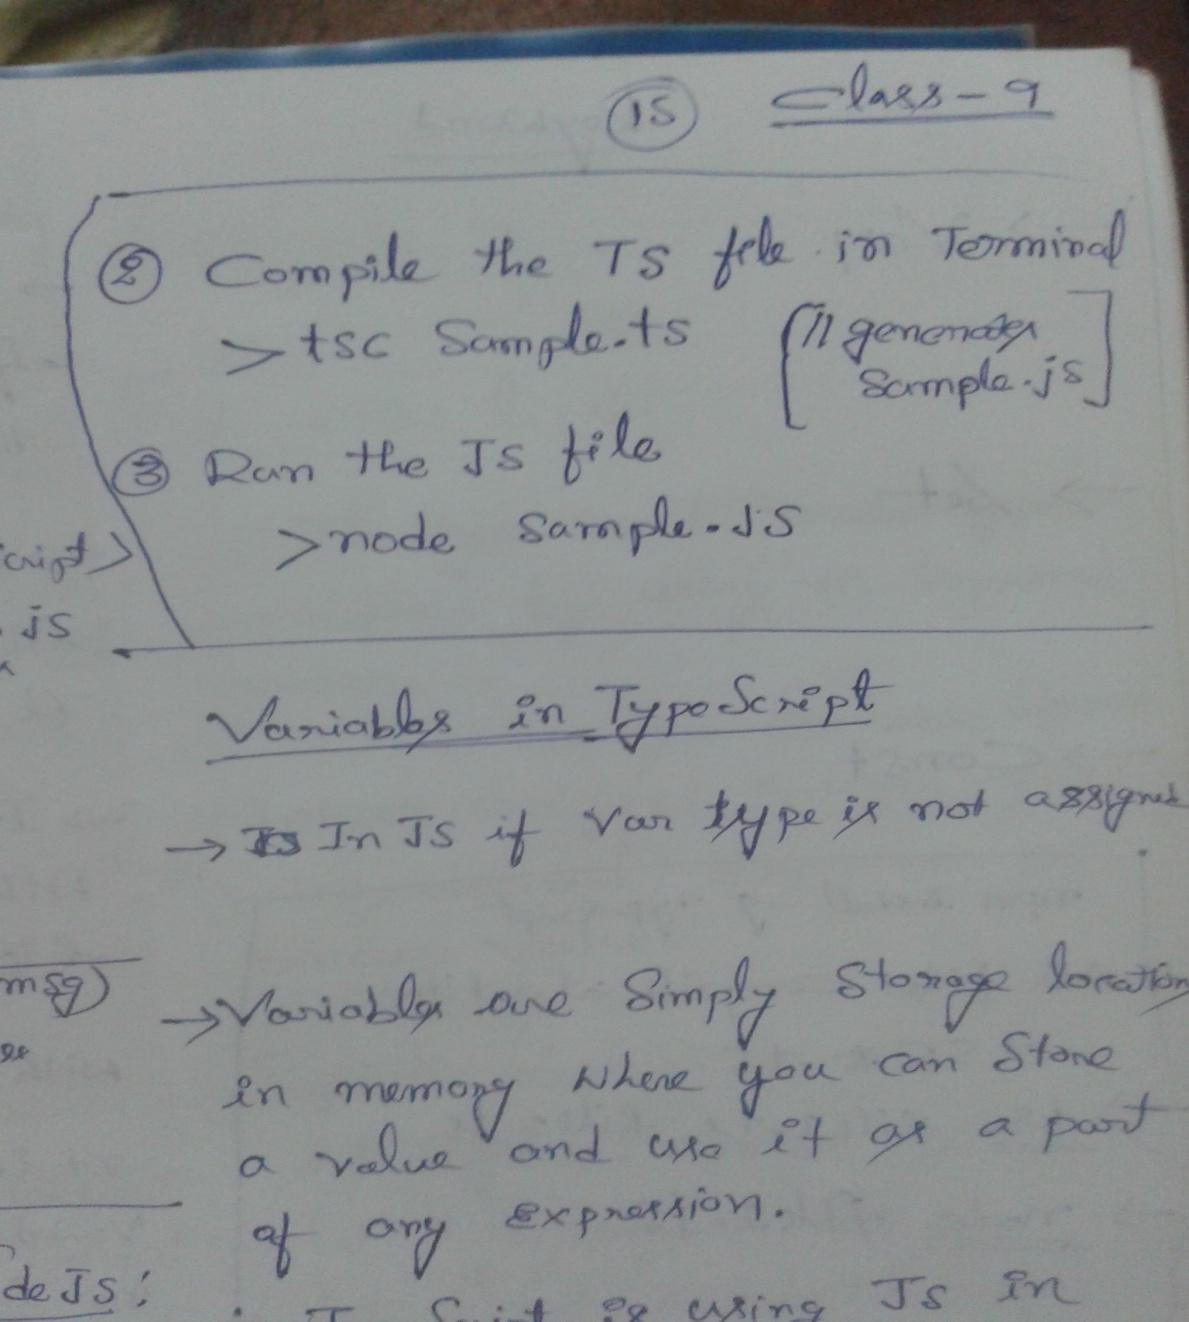 15 Class-9
② Compile the TS file in Terminal
> tsc Sample.ts [// generates
Sample.js]
③ Run the JS file
cript> >node Sample.JS
.js
Variables in TypeScript
→ In JS if var type is not assigned
msg)
→ Variables are Simply Storage location
in memory where you can Store
a value and use it as a part
of any Expression.
de JS:
is using JS in